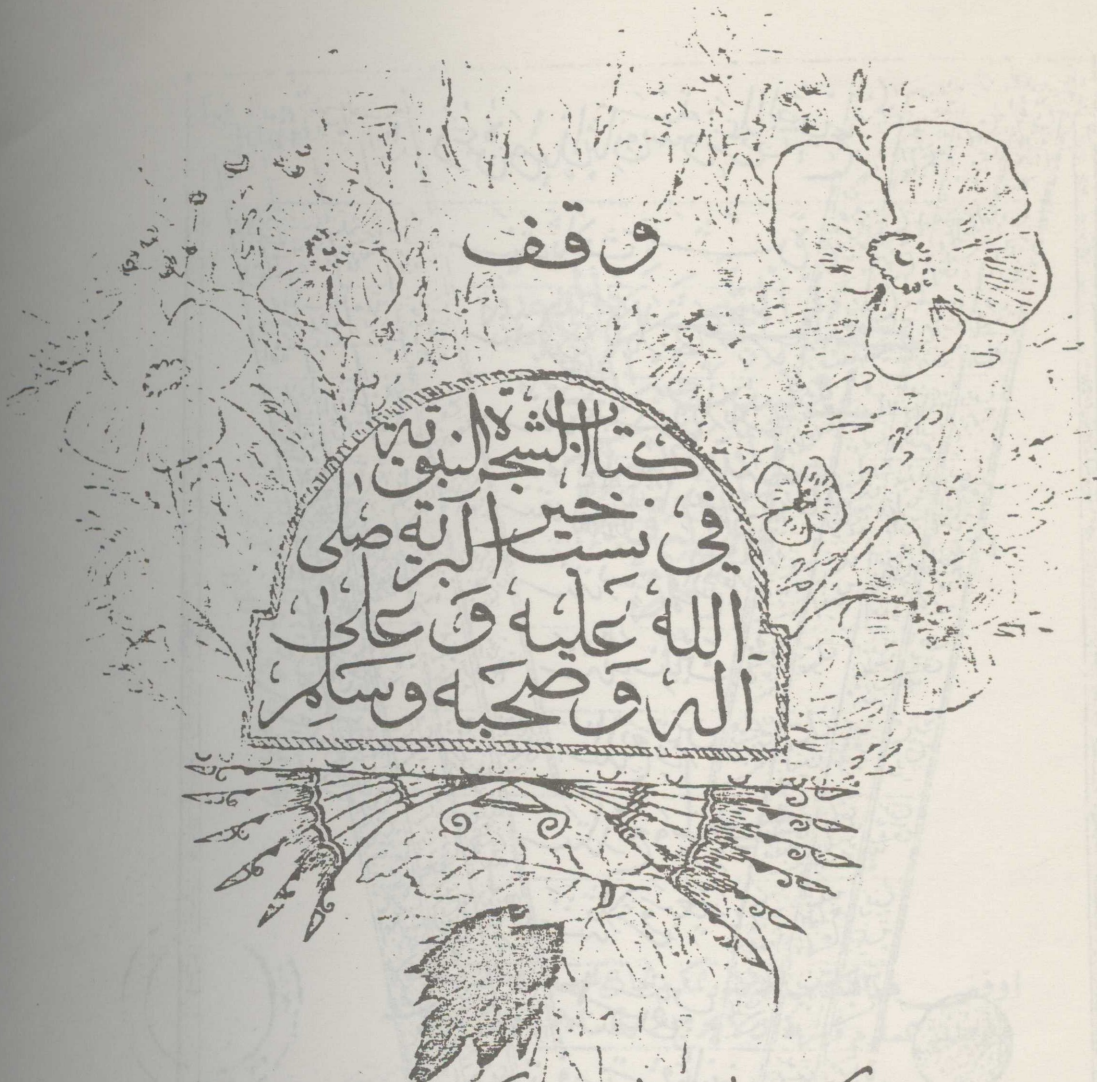 وقف
كتاب الشجرة النبوية
في نسب خير البرية صلى
الله عليه وَعلى
آله وَصحبه وسَلِم